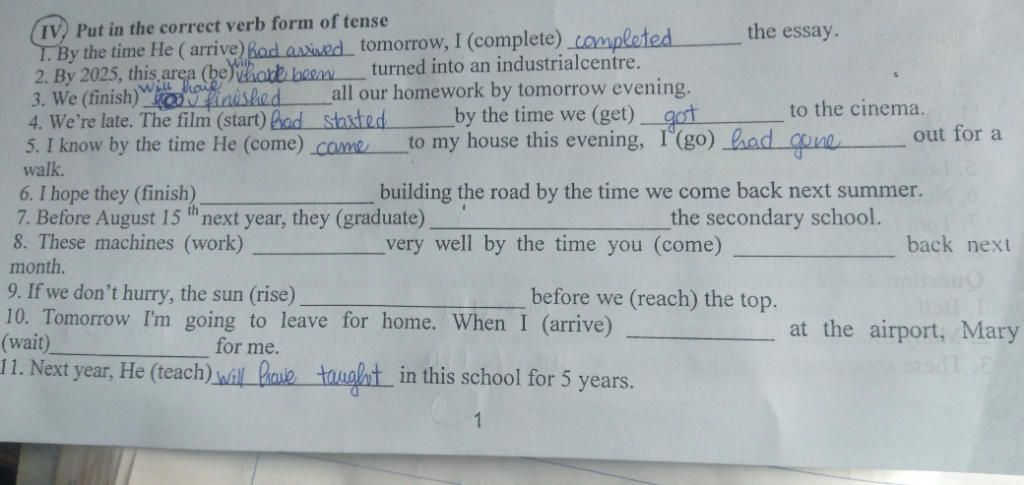 IV) Put in the correct verb form of tense
1. By the time He ( arrive) had arrived tomorrow, I (complete) completed the essay.
2. By 2025, this area (be) will have been turned into an industrialcentre.
3. We (finish) will have finished all our homework by tomorrow evening.
4. We're late. The film (start) had started by the time we (get) got to the cinema.
5. I know by the time He (come) came to my house this evening, I (go) had gone out for a
walk.
6. I hope they (finish) ____ building the road by the time we come back next summer.
7. Before August 15 th next year, they (graduate) ____ the secondary school.
8. These machines (work) ____ very well by the time you (come) ____ back next
month.
9. If we don't hurry, the sun (rise) ____ before we (reach) the top.
10. Tomorrow I'm going to leave for home. When I (arrive) ____ at the airport, Mary
(wait) ____ for me.
11. Next year, He (teach) will have taught in this school for 5 years.
1